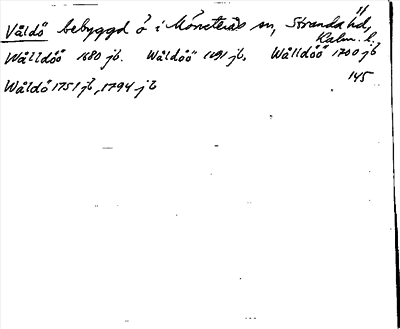 Våldö bebyggd ö i Mönsterås sn, Stranda hd,
Kalm. l.
Wålldöö 1680 jb. Wåldöö 1691 jb. Wålldöö 1700 jb
145
Wåldö 1751 jb, 1794 jb